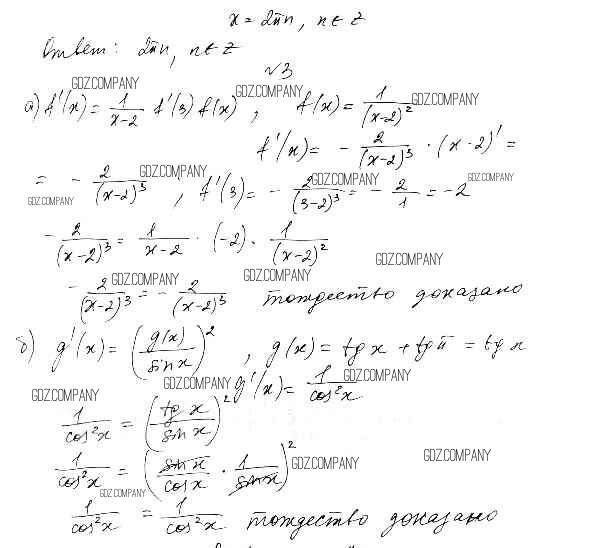 x = 2πn, n ∈ Z
Ответ: 2πn, n ∈ Z
№3
GDZ.COMPANY
а) f'(x) = 1/(x-2) f'(3) f(x) GDZ.COMPANY , f(x) = 1/(x-2)² GDZ.COMPANY
f'(x) = - 2/(x-2)³ · (x-2)' =
= - 2/(x-2)³ GDZ.COMPANY , f'(3) = - 2/(3-2)³ GDZ.COMPANY = - 2/1 = -2 GDZ.COMPANY
GDZ.COMPANY
- 2/(x-2)³ = 1/(x-2) · (-2) · 1/(x-2)²
GDZ.COMPANY
GDZ.COMPANY GDZ.COMPANY
- 2/(x-2)³ = - 2/(x-2)³ тождество доказано
б) g'(x) = (g(x)/sin x)² , g(x) = tg x + tg π = tg x
GDZ.COMPANY GDZ.COMPANY g'(x) = 1/cos²x GDZ.COMPANY
1/cos²x = (tg x/sin x)²
1/cos²x = (sin x/cos x · 1/sin x)² GDZ.COMPANY GDZ.COMPANY
GDZ.COMPANY
1/cos²x = 1/cos²x тождество доказано